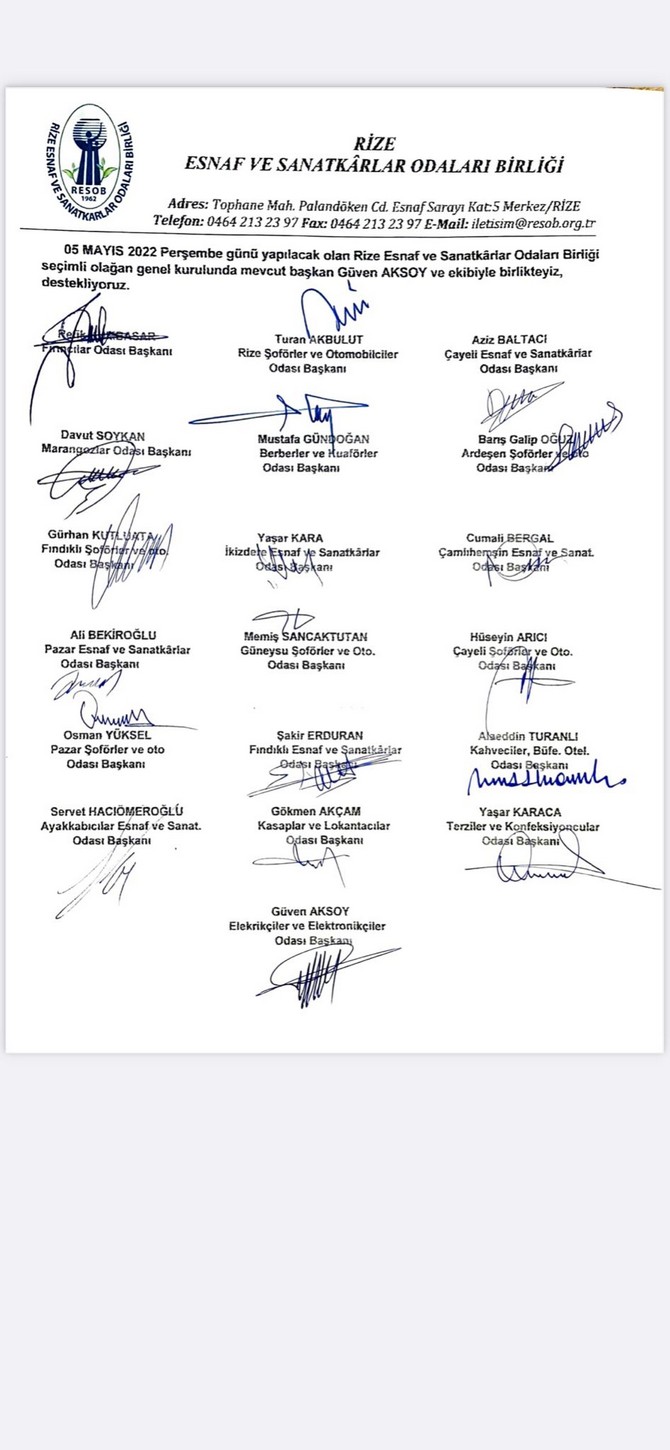 RİZE ESNAF VE SANATKARLAR ODALARI BİRLİĞİ
RESOB
1962
RİZE
ESNAF VE SANATKÂRLAR ODALARI BİRLİĞİ
Adres: Tophane Mah. Palandöken Cd. Esnaf Sarayı Kat:5 Merkez/RİZE
Telefon: 0464 213 23 97 Fax: 0464 213 23 97 E-Mail: iletisim@resob.org.tr
05 MAYIS 2022 Perşembe günü yapılacak olan Rize Esnaf ve Sanatkârlar Odaları Birliği
seçimli olağan genel kurulunda mevcut başkan Güven AKSOY ve ekibiyle birlikteyiz,
destekliyoruz.
Refik
Fırıncılar Odası Başkanı
Turan AKBULUT
Rize Şoförler ve Otomobilciler
Odası Başkanı
Aziz BALTACI
Çayeli Esnaf ve Sanatkârlar
Odası Başkanı
Davut SOYKAN
Marangozlar Odası Başkanı
Mustafa GÜNDOĞAN
Berberler ve Kuaförler
Odası Başkanı
Barış Galip OĞUZ
Ardeşen Şoförler ve oto
Odası Başkanı
Gürhan KUTLUATA
Fındıklı Şoförler ve oto.
Odası Başkanı
Yaşar KARA
İkizdere Esnaf ve Sanatkârlar
Odası Başkanı
Cumali BERGAL
Çamlıhemşin Esnaf ve Sanat.
Odası Başkanı
Ali BEKİROĞLU
Pazar Esnaf ve Sanatkârlar
Odası Başkanı
Memiş SANCAKTUTAN
Güneysu Şoförler ve Oto.
Odası Başkanı
Hüseyin ARICI
Çayeli Şoförler ve Oto.
Odası Başkanı
Osman YÜKSEL
Pazar Şoförler ve oto
Odası Başkanı
Şakir ERDURAN
Fındıklı Esnaf ve Sanatkârlar
Odası Başkanı
Alaeddin TURANLI
Kahveciler, Büfe. Otel.
Odası Başkanı
Servet HACIÖMEROĞLU
Ayakkabıcılar Esnaf ve Sanat.
Odası Başkanı
Gökmen AKÇAM
Kasaplar ve Lokantacılar
Odası Başkanı
Yaşar KARACA
Terziler ve Konfeksiyoncular
Odası Başkanı
Güven AKSOY
Elekrikçiler ve Elektronikçiler
Odası Başkanı